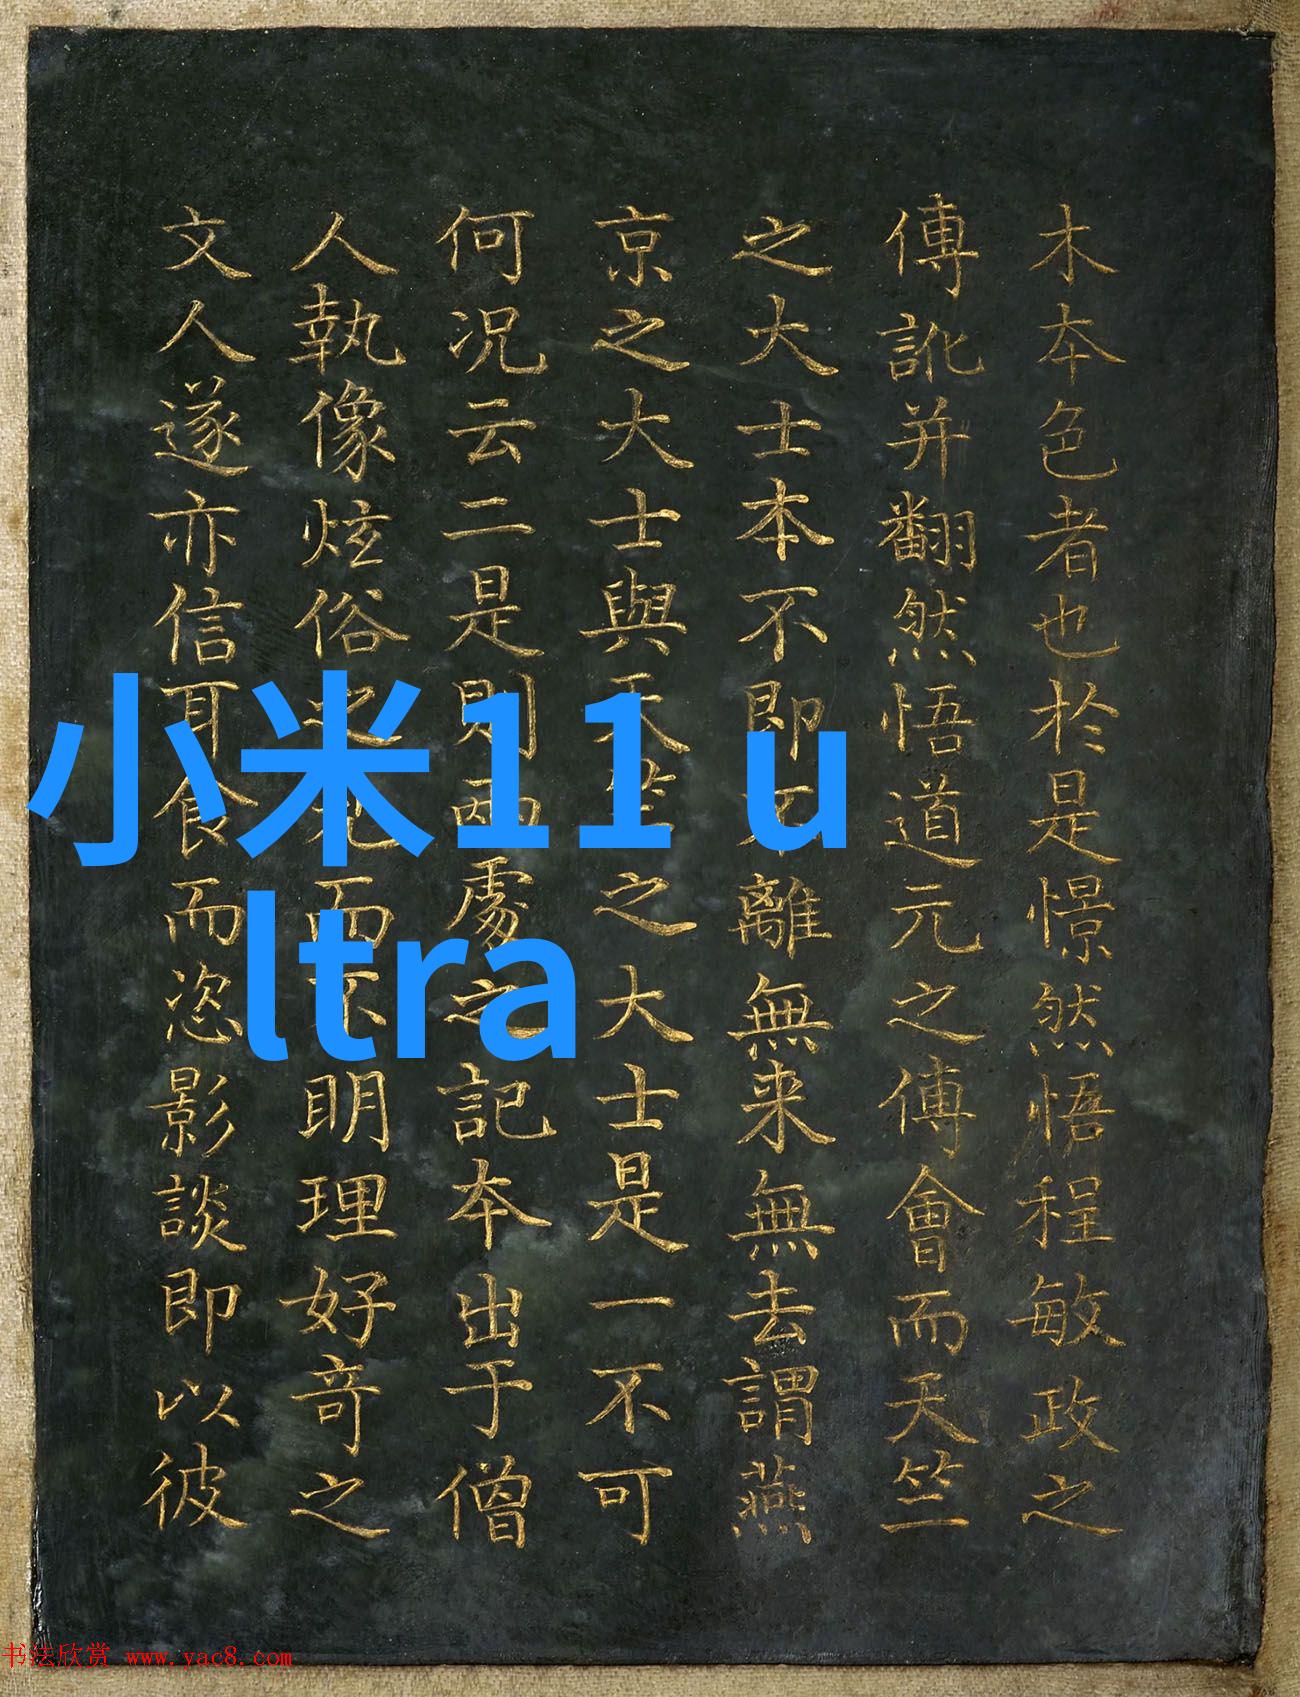 木本色者也於是憬然悟程敏政之
傅訛并翻然悟道元之傅會而天竺
之大士本不即不離無来無去謂燕
京之大士與天竺之大士是一不可
何況云二是則兩處之記本出于僧
人執像炫俗之而不明理好奇之
文人遂亦信耳食而恣影談即以彼
小米11 u
ltra
书法欣赏 www.yac8.com